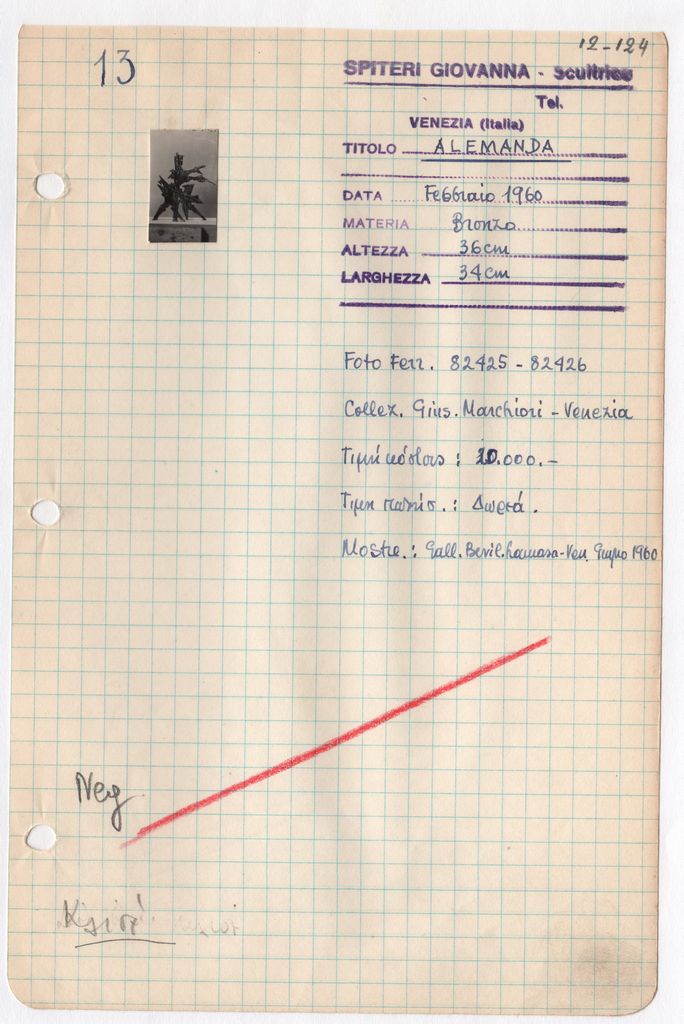 12-124
13
SPITERI GIOVANNA - Scultrice
Tel.
VENEZIA (Italia)
TITOLO ALEMANDA
DATA Febbraio 1960
MATERIA Bronzo
ALTEZZA 36cm
LARGHEZZA 34cm
Foto Ferr. 82425 - 82426
Collez. Gius. Marchiori - Venezia
Τιμή κόστους : 20.000.-
Τιμή : Δωρεά.
Mostre.: Gall. Bevil. Lamasa-Ven. Giugno 1960
Neg